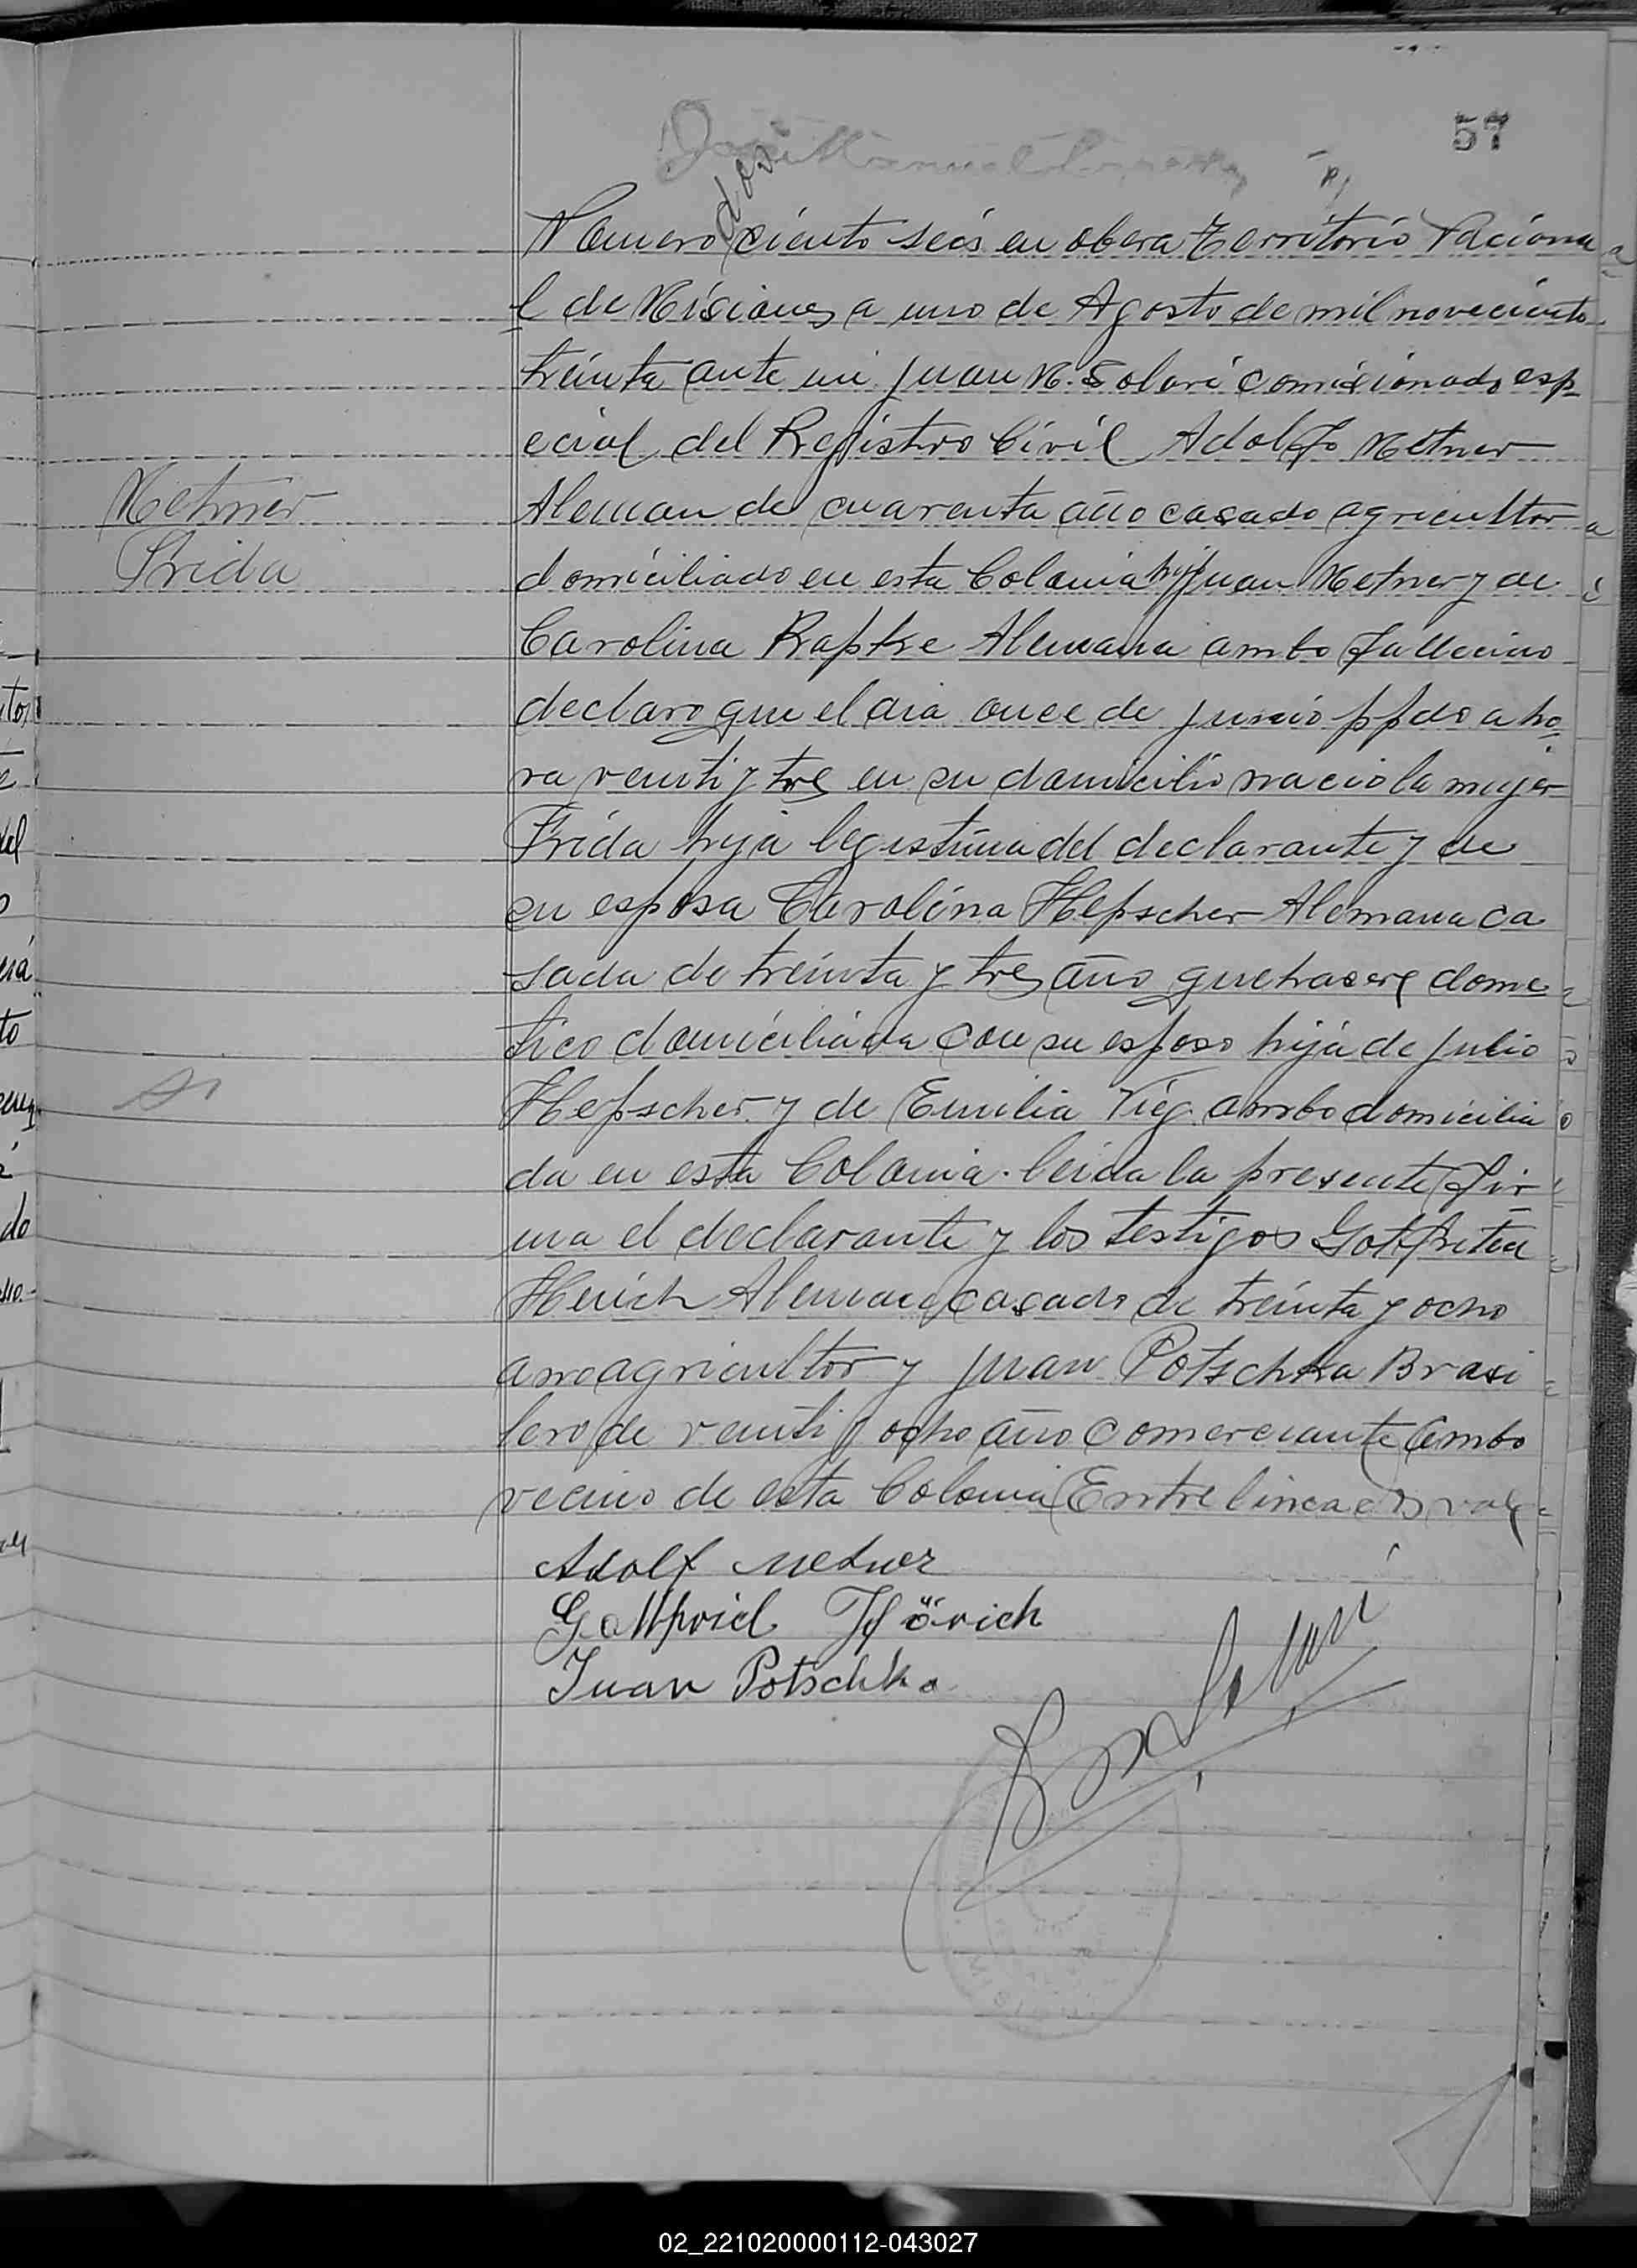 57
dos
Numero ciento seis en obera territorio Naciona
l de Misiones a uno de Agosto de mil noveciento
treinta ante mi Juan M. Solari comisionado esp
ecial del Registro Civil Adolfo Metner
Aleman de cuarenta año casado agricultor
Metner
Frida
domiciliado en esta Colonia hijo Juan Metner y de
Carolina Rapke Alemana ambo fallecino
declaro que el dia once de junio ppdo a ho
ra veinti y tres en su domicilio nacio la mujer
Frida hija legistima del declarante y de
su esposa Carolina Hepscher Alemana ca
sada de treinta y tres año quehaseres dome
tico domiciliada con su esposo hija de Julio
Hepscher y de Emilia Vieg ambo domicilia
da en esta Colonia. leida la presente fir
ma el declarante y los testigos Gottfriten
Henich Aleman casado de treinta y ocho
ano agricultor y Juan Potschka Brasi
lero de veinti y ocho año comerciante ambo
vecino de esta Colonia Entre linea dos vale
Adolf Metner
Gottfried Hörich
Juan Potschka
02_221020000112-043027